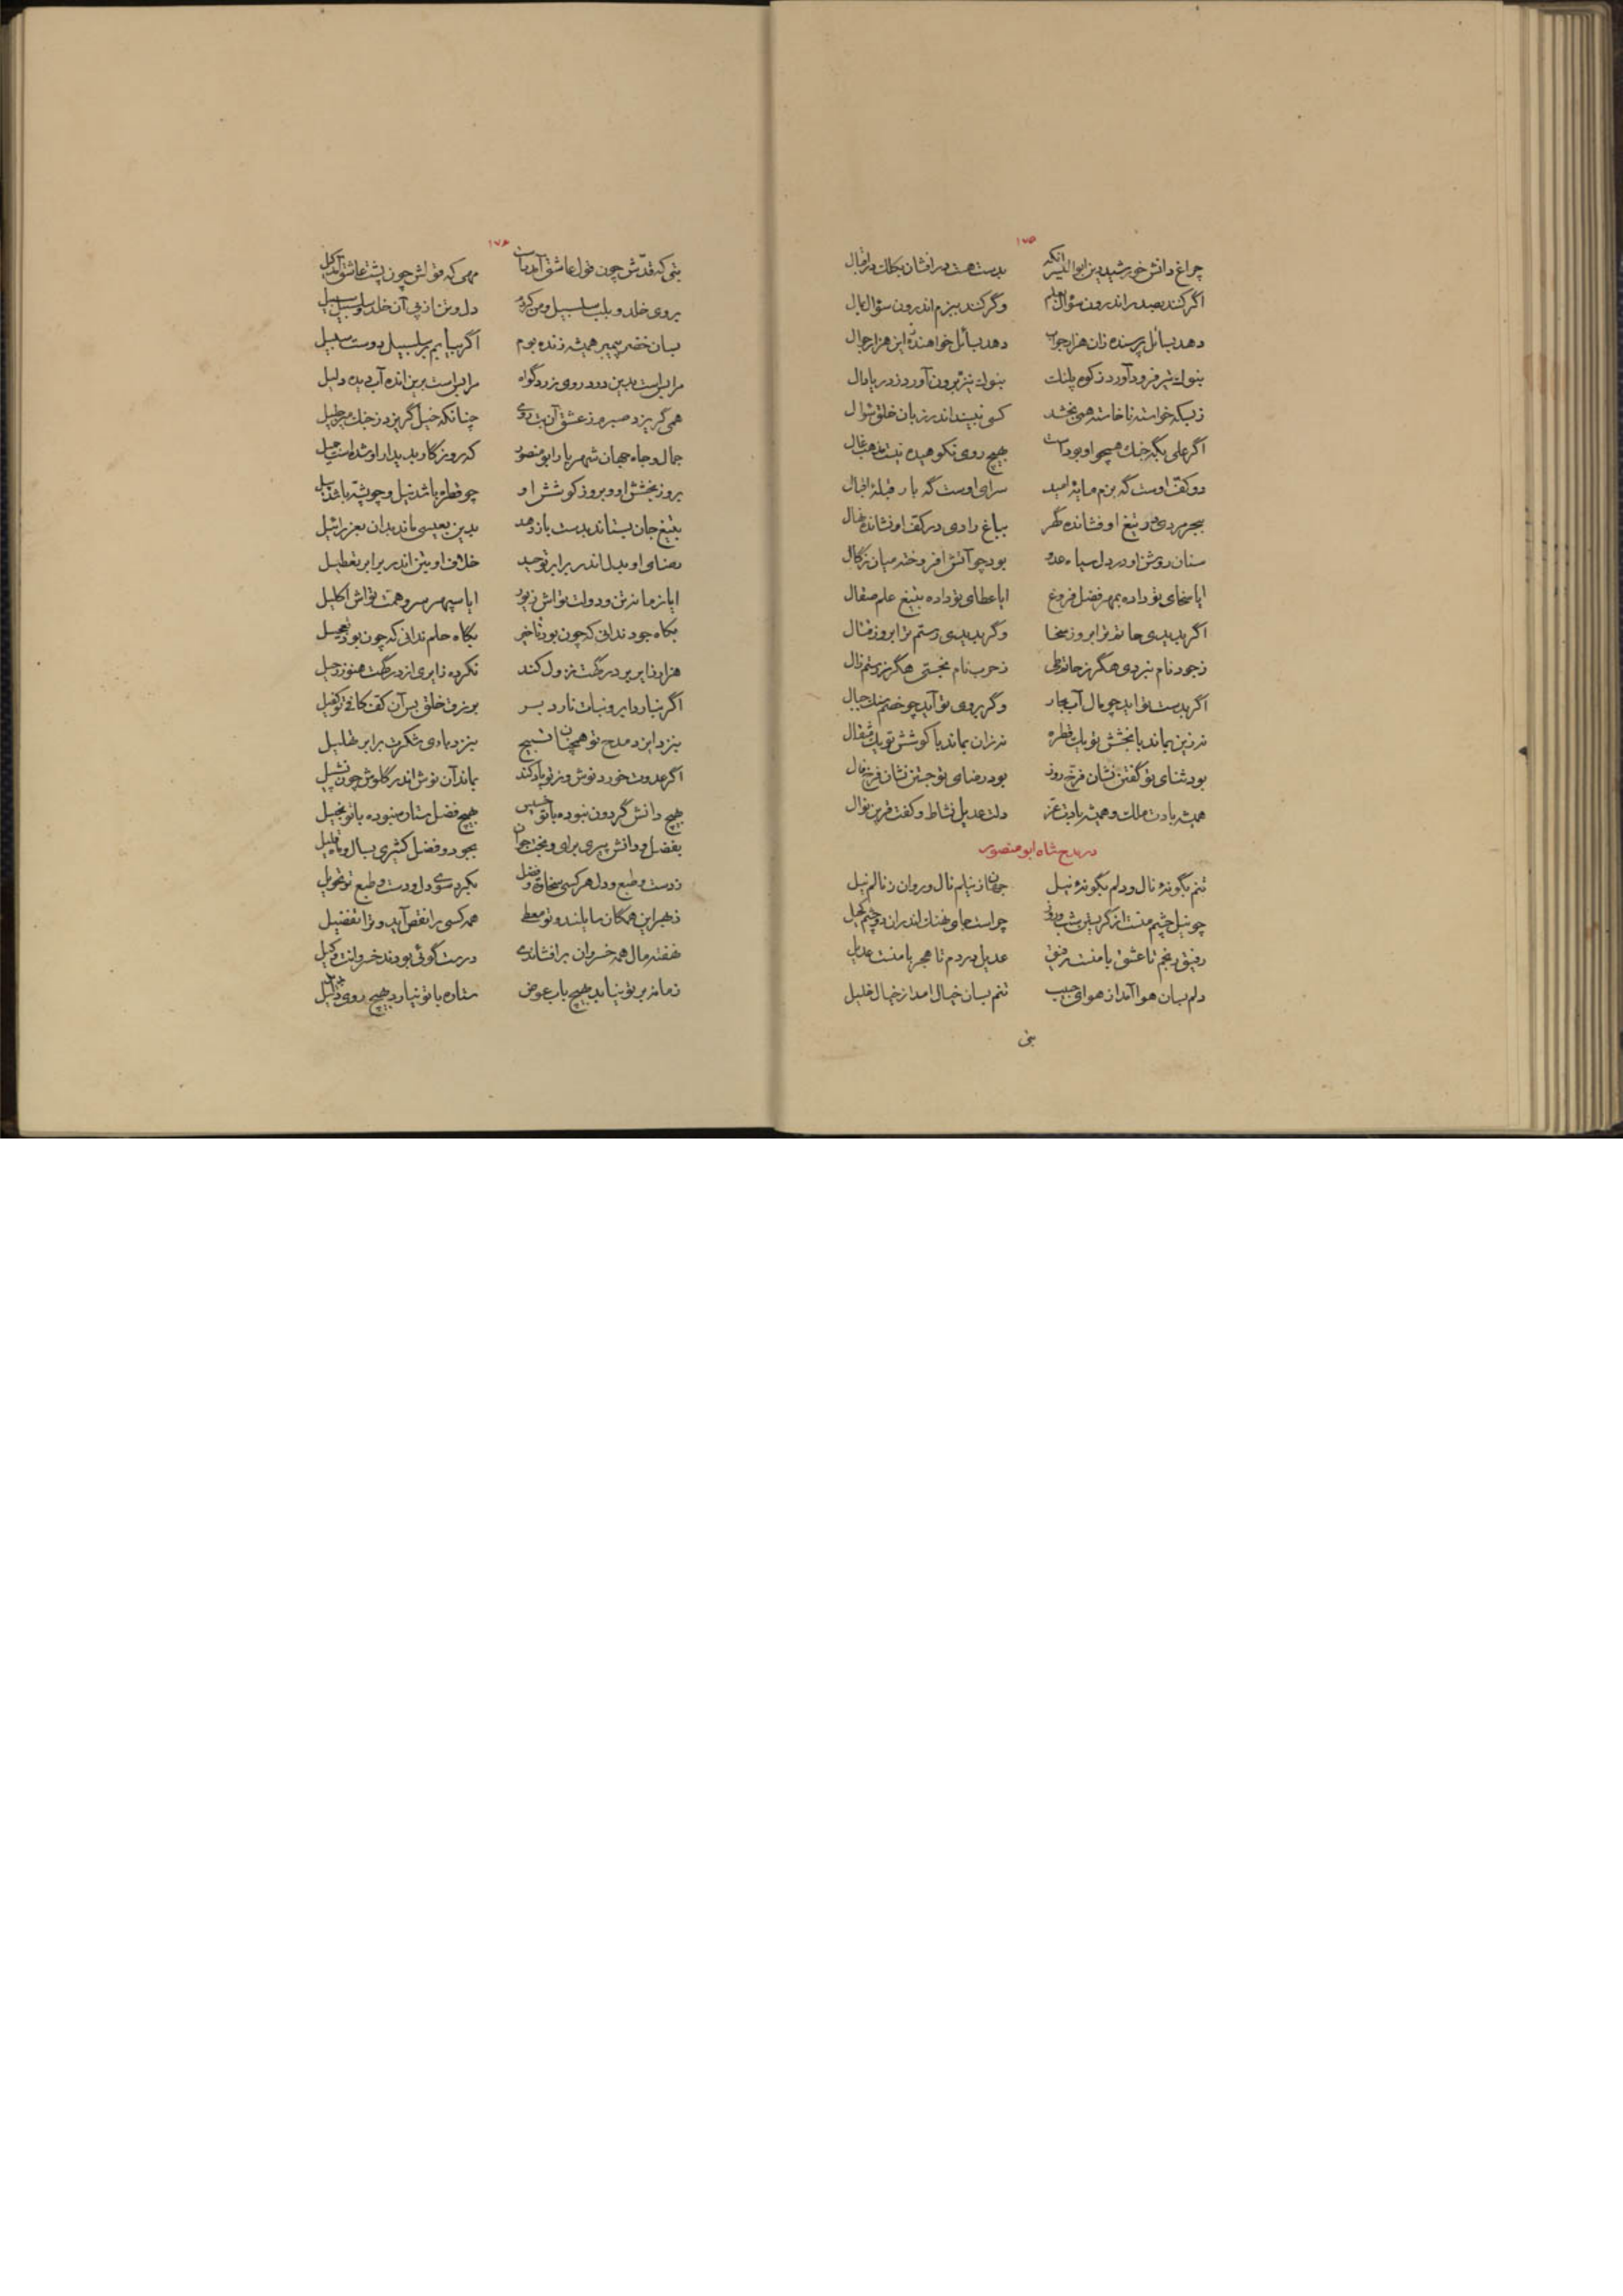 ۱۷۵
چراغ دانش خورشید دین ابوالیسر آنکه بدست هست درافشان بکلک دراقبال
اگر کند بصدر اندرون سؤال علم وگر کند ببزم اندرون سؤال بمال
دهد بسائل پرسنده زان هزار جواب دهد بسائل خواهنده این هزار جوال
بنوک تیر فرود آورد ز کوه پلنگ بنوک نیزه برون آورد ز دریا دال
ز بسکه خواسته ناخاسته همی بخشد کسی نبیند اندر زبان خلق سؤال
اگر علی بگه جنگ همچو او بوداست بهیچ روی نکوهیده نیست مذهب غال
دو کف اوست گه بزم مایه امید سرای اوست گه بار قبله اقبال
ببحر مردی در تیغ او فشانده گهر بباغ رادی در کف او نشانده نهال
سنان روشن او در دل سیاه عدو بود چو آتش افروخته میان زگال
ایا سخای تو داده بمهر فضل فروغ ایا عطای تو داده بتیغ علم صقال
اگر بدیدی حاتم ترا بروز سخا وگر بدیدی رستم ترا بروز قتال
ز جود نام نبردی هگرز حاتم طی ز حرب نام نجستی هگرز رستم زال
اگر بدست تو آید چو مال آب بحار وگر بروی تو آید چو خصم سنگ جبال
نه زین بماند با بخشش تو یک قطره نه زان بماند با کوشش تو یک مثقال
بود ثنای تو گفتن نشان فرخ روز بود رضای تو جستن نشان فرخ فال
همیشه بادت ملک و همیشه بادت عز دلت عدیل نشاط و کفت قرین نوال
در مدح شاه ابو منصور
تنم بگونه نال و دلم بگونه نیل جهان ز نیلم نال و روان ز نالم نیل
چو نیل چشم منست از گریستن شب و روز چراست جای نهنگ اندران دو چشم کحیل
رفیق رنجم تا عشق با منست رفیق عدیل دردم تا هجر با منست عدیل
دلم بسان هوا آمد از هوای حبیب تنم بسان خیال آمد از خیال خلیل
بتی
۱۷۶
بتی که قدش چون قول عاشق آمد راست مهی که قولش چون پشت عاشق آمد کیل
بروی خلد و بلب سلسبیل و من کرده دل و تن از پی آن خلد و سلسبیل سبیل
بسان خضر پیمبر همیشه زنده بوم اگر بیابم بر سلسبیل دوست سبیل
مرا بس است بدین درد روی زرد گواه مرا بس است برین انده آب دیده دلیل
همی گریزد صبر من ز عشق آن بت روی چنانکه خیل گریزد ز جنگ میر جلیل
جمال و جاه جهان شهریار ابو منصور که روزگار بدیدار او شده است جمیل
بروز بخشش او و بروز کوشش او چو قطره باشد نیل و چو پشه باشد پیل
بتیغ جان بستاند بدست باز دهد بدین بعیسی ماند بدان بعزرائیل
رضای او بدل اندر برابر توحید خلاف او بتن اندر برابر تعطیل
ایا زمانه تن و دولت تواش زیور ایا سپهر سر و همت تواش اکلیل
بگاه جود ندانی که چون بود تأخیر بگاه حلم ندانی که چون بود تعجیل
هزار زایر بر درگهت نزول کند نکرده زایری از درگهت هنوز رحیل
اگر نبارد ابر و نبات نارد بر برزق خلق بس آن کف کافی تو کفیل
بنزد ایزد مدح تو همچنان تسبیح بنزد بادی شکرت برابر تهلیل
اگر عدوت خورد نوش و ز تو یاد کند بماند آن نوش اندر گلوش چون نشپیل
بهیچ دانش گردون نبوده با تو خسیس بهیچ فضل ستاره نبوده با تو بخیل
بفضل و دانش پیری برای و بخت جوان بجود و فضل کثیری بسال و ماه قلیل
ز دست و طبع و دل هر کسی سخاوت و فضل بکرد سوی دل و دست و طبع تو تحویل
ز بهر این همگان سایلند و تو معطی همه کسی را نقص آید و ترا تفضیل
نهفته مال همه خسروان برافشاندی درست گوئی بودند خسروانت وکیل
زمانه بر تو نیابد بهیچ باب عوض ستاره با تو نیارد بهیچ روی بدیل